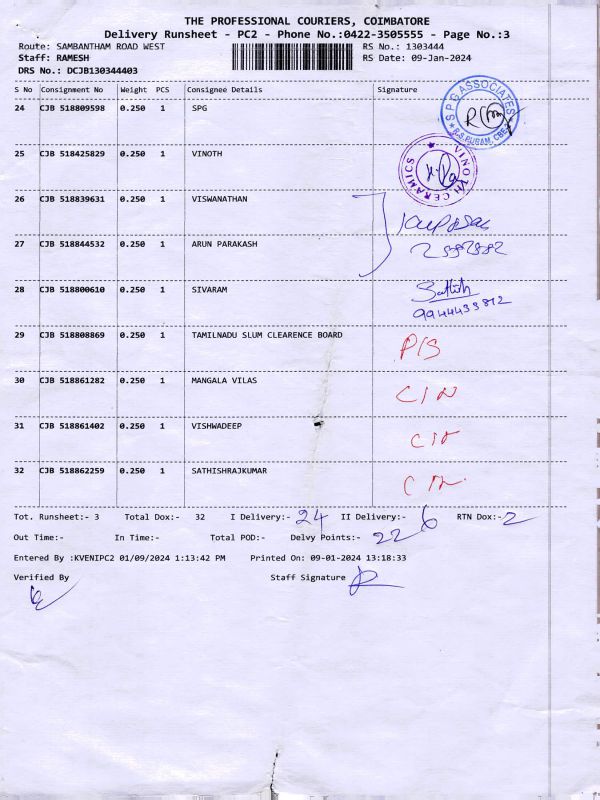 THE PROFESSIONAL COURIERS, COIMBATORE
Delivery Runsheet - PC2 - Phone No.:0422-3505555 - Page No.:3
Route: SAMBANTHAM ROAD WEST RS No.: 1303444
Staff: RAMESH RS Date: 09-Jan-2024
DRS No.: DCJB130344403
S No Consignment No Weight PCS Consignee Details Signature
24 CJB 518809598 0.250 1 SPG
SPG ASSOCIATES
R.S.PURAM, CBE
25 CJB 518425829 0.250 1 VINOTH
VINOTH CERAMICS
26 CJB 518839631 0.250 1 VISWANATHAN
27 CJB 518844532 0.250 1 ARUN PARAKASH
28 CJB 518800610 0.250 1 SIVARAM Sathish
9944433812
29 CJB 518808869 0.250 1 TAMILNADU SLUM CLEARENCE BOARD P/S
30 CJB 518861282 0.250 1 MANGALA VILAS C/N
31 CJB 518861402 0.250 1 VISHWADEEP
32 CJB 518862259 0.250 1 SATHISHRAJKUMAR
Tot. Runsheet:- 3 Total Dox:- 32 I Delivery:- 24 II Delivery:- 6 RTN Dox:- 2
Out Time:- In Time:- Total POD:- Delvy Points:- 22
Entered By :KVENIPC2 01/09/2024 1:13:42 PM Printed On: 09-01-2024 13:18:33
Verified By Staff Signature